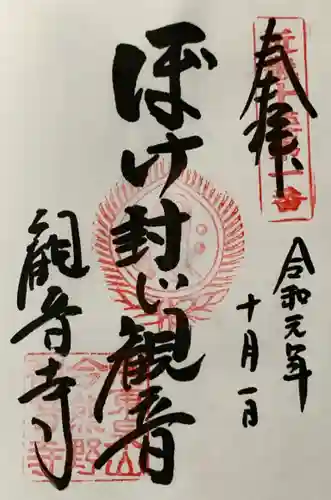 奉拝
令和元年
十月一日
ぼけ封じ観音
観音寺